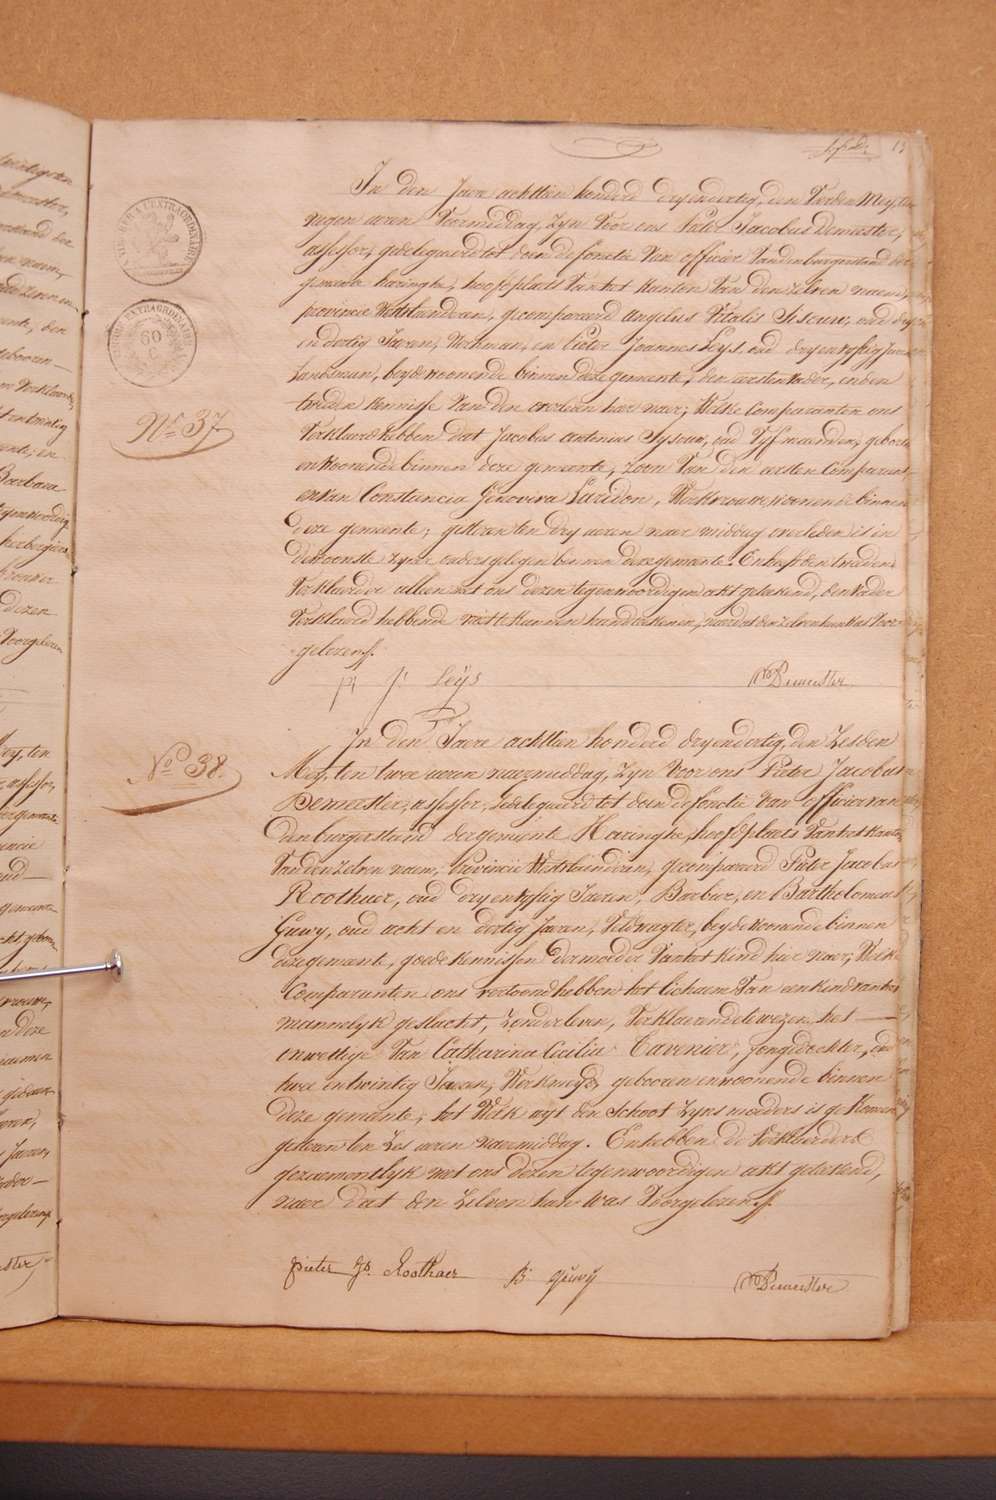 13
TIMBRE EXTRAORDINAIRE
TIMBRE EXTRAORDINAIRE
60
C
In den Jaere achttien honderd dryendertig, den Vierden Mey, ten
negen ueren Voormiddag, Zyn Voor ons Pieter Jacobus Demeester,
assessor, gedelegueerd tot doen de fonctie Van officier Van den burgerstand der
gemeente haringhe, hoofdplaets Van het Kanton Van den Zelven naem,
provincie Westvlaenderen, gecompareerd Angelus Vitalis Sysouw, oud dry
en dertig Jaeren, Werkman, en Pieter Joannes Leys, oud dryenvyftig Jaeren
Landsman, beyde woonende binnen deze gemeente, den eersten Vader, en den
tweeden kennisse Van den overleden hier naer; Welke Comparanten ons
Verklaerd hebben dat Jacobus Antonius Sysouw, oud Vyf maenden, geboren
en Woonende binnen deze gemeente, zoon Van den eersten Comparant
en Van Constancia Genoveva Laridon, Werkvrouwe, woonende binnen
deze gemeente, gisteren ten dry ueren naer middag overleden is in
de Woonste Zyner ouders gelegen binnen deze gemeente. En heeft den tweeden
Verklaerder alleen met ons dezen tegenwoordigen akt geteekend, den Vader
Verklaerd hebbende niet te Kunnen handteekenen, naer dat den Zelven hun Was Voor
gelezen.
N.º 37.
p. j. Leÿs
PJDemeester
N.º 38.
In den Jaere achttien honderd dryendertig, den Zesden
Mey, ten twee ueren naermiddag, Zyn Voor ons Pieter Jacobus
Demeester, assessor, gedelegueerd tot doen de fonctie Van officier van
den burgerstand der gemeente Haringhe, hoofdplaets Van het Kanton
Van den Zelven naem, Provincie Westvlaenderen, gecompareerd Pieter Jacobus
Roothaer, oud dry en vyftig Jaeren, Barbier, en Bartholomeus
Guwy, oud acht en dertig Jaeren, Veldwagter, beyde woonende binnen
deze gemeente, goede kennissen der moeder Van het Kind hier naer; Welke
Comparanten ons vertoond hebben het lichaem Van een kind van het
mannelyk geslacht, Zonder leven, Verklaerende te wezen het
onwettige Van Catharina Cicilia Cavenier, Jongedochter, oud
twee entwintig Jaeren, Werkmeyd, gebooren en woonende binnen
deze gemeente, het Welk uyt den Schoot Zyns moeders is gekomen
gisteren ten Zes ueren naermiddag. En hebben de Verklaerders
gezaementlyk met ons dezen tegenwoordigen akt geteekend,
naer dat den Zelven hun Was Voorgelezen.
pieter Js. Roothaer
B. guwÿ
PJDemeester